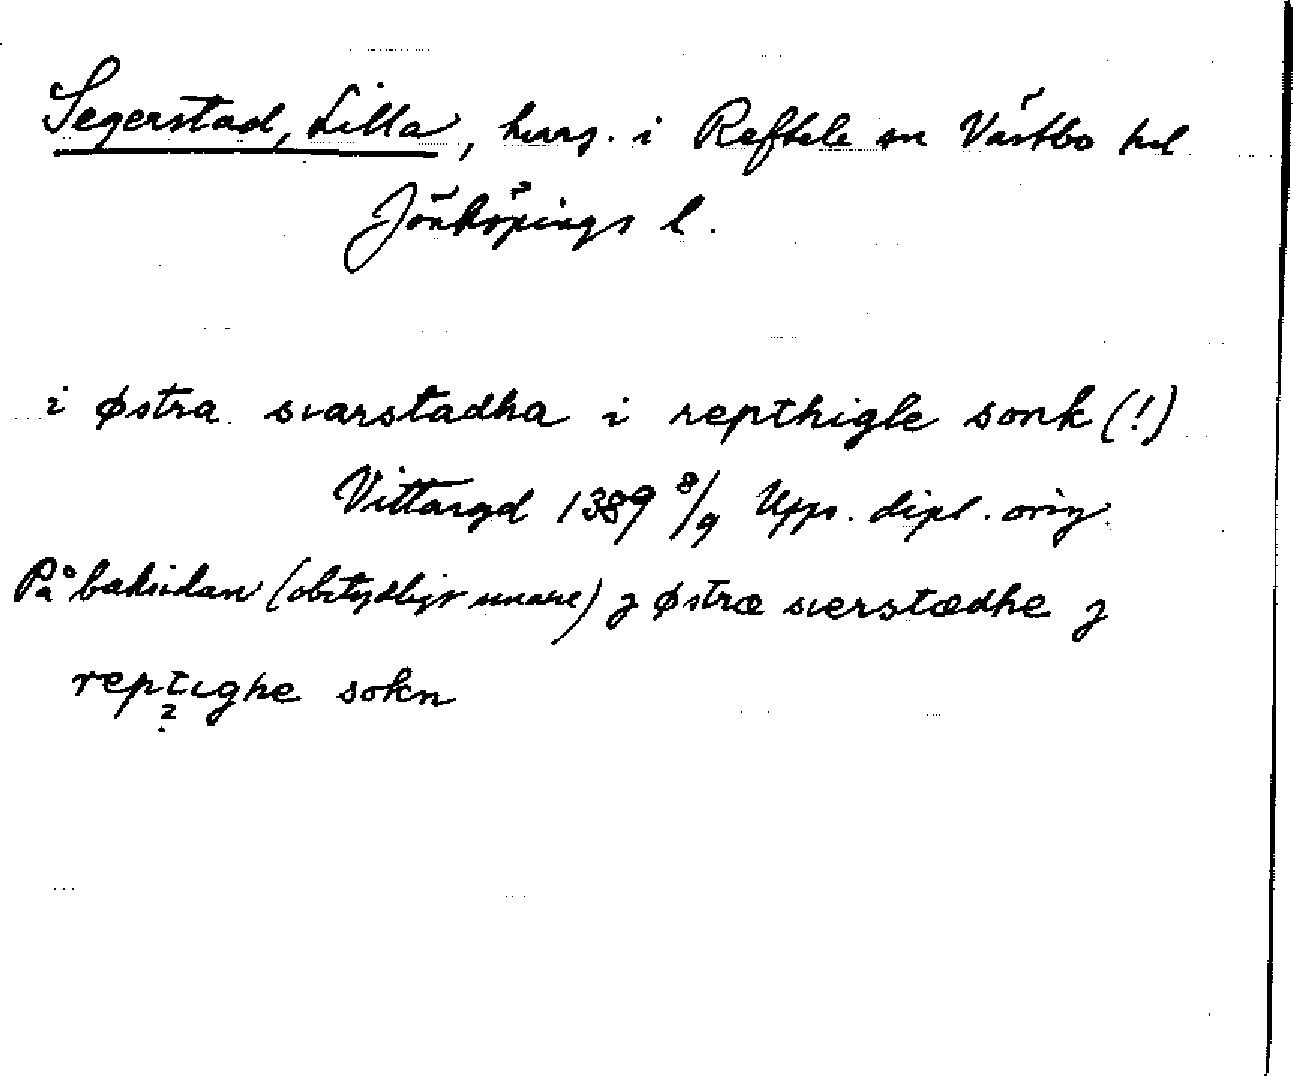 Segerstad, Lilla, herrg. i Reftele sn Västbo hd
Jönköpings l.
i østra svarstadha i repthigle sonk (!)
Vittaryd 1389 8/9 Upps. dipl. orig.
På baksidan (obetydligt senare) j østræ sverstædhe j
reptighe sokn
?